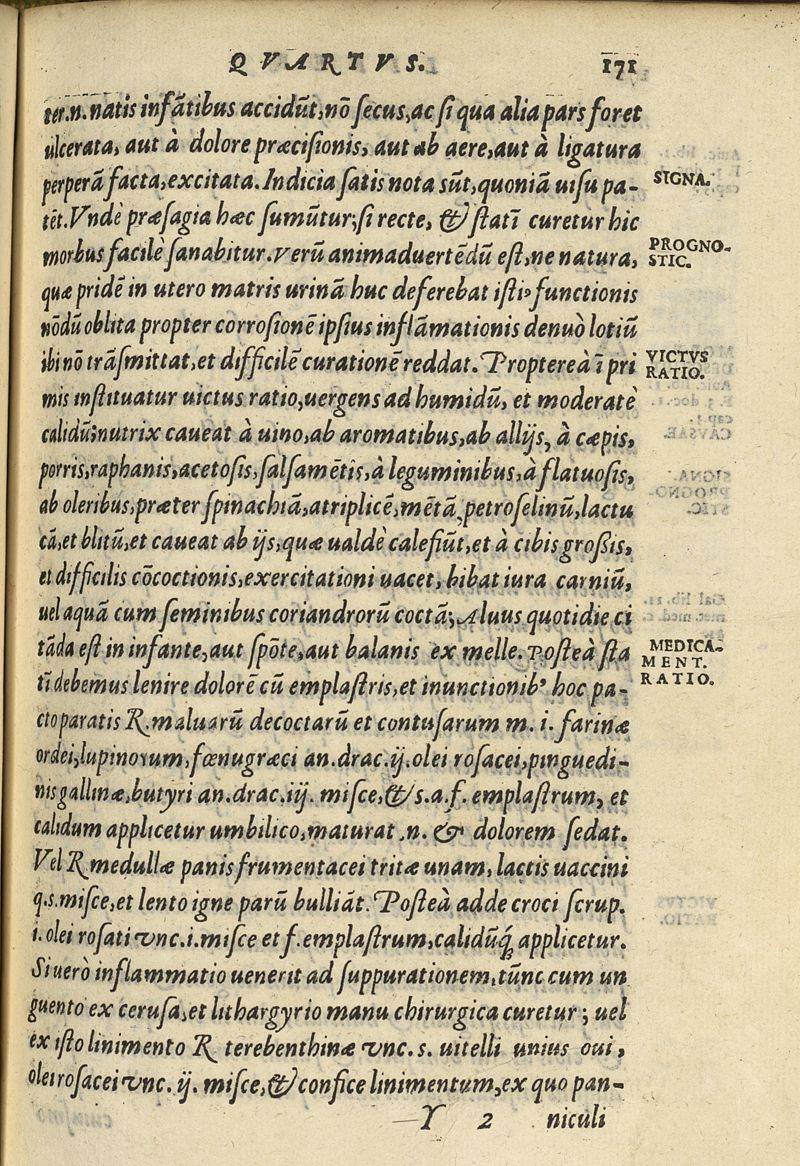 QVARTVS. 171
ter.n.natis infãtibus accidũt, nõ ſecus, ac ſi qua alia pars foret
ulcerata, aut à dolore præciſionis, aut ab aere, aut à ligatura
perperã facta, excitata. Indicia ſatis nota sũt, quoniã uiſu pa-
SIGNA.
tẽt. Vndè præſagia hæc ſumũtur; ſi recte, & ſtatĩ curetur hic
morbus facilè ſanabitur. Verũ animaduertẽdũ eſt, ne natura,
PROGNO-
STIC.
quæ pridẽ in utero matris urinã huc deferebat iſti⁹ functionis
nõdũ oblita propter corroſionẽ ipſius inflãmationis denuò lotiũ
ibi nõ trãſmittat, et difficilẽ curationẽ reddat. Proptereà ĩ pri
VICTVS
RATIO.
mis inſtituatur uictus ratio, uergens ad humidũ, et moderatè
calidũ: nutrix caueat à uino, ab aromatibus, ab allijs, à cæpis,
porris, raphanis, acetoſis, ſalſamẽtis, à leguminibus, à flatuoſis,
ab oleribus, præter ſpinachiã, atriplicẽ, mẽtã, petroſelinũ, lactu
cã, et blitũ, et caueat ab ijs, quæ ualdè calefiũt, et à cibis großis,
et difficilis cõcoctionis, exercitationi uacet, bibat iura carniũ,
uel aquã cum ſeminibus coriandrorũ coctã; Aluus quotidie ci
tãda eſt in infante, aut ſpõte, aut balanis ex melle. Poſteà ſta
MEDICA-
MENT.
RATIO.
tĩ debemus lenire dolorẽ cũ emplaſtris, et inunctionib⁹ hoc pa-
cto paratis ℞. maluarũ decoctarũ et contuſarum m. i. farinæ
ordei, lupinorum, fœnugræci an. drac. ij. olei roſacei, pinguedi-
nis gallinæ, butyri an. drac. iij. miſce, & s.a.f. emplaſtrum, et
calidum applicetur umbilico, maturat .n. & dolorem ſedat.
Vel ℞ medullæ panis frumentacei tritæ unam, lactis uaccini
q.s. miſce, et lento igne parũ bulliãt. Poſteà adde croci ſcrup.
i. olei roſati vnc. i. miſce et f. emplaſtrum, calidũq́; applicetur.
Si uerò inflammatio uenerit ad ſuppurationem, tũnc cum un
guento ex ceruſa, et lithargyrio manu chirurgica curetur; uel
ex iſto linimento ℞ terebenthinæ vnc. s. uitelli unius oui,
olei roſacei vnc. ij. miſce, & confice linimentum, ex quo pan-
Y 2 niculi